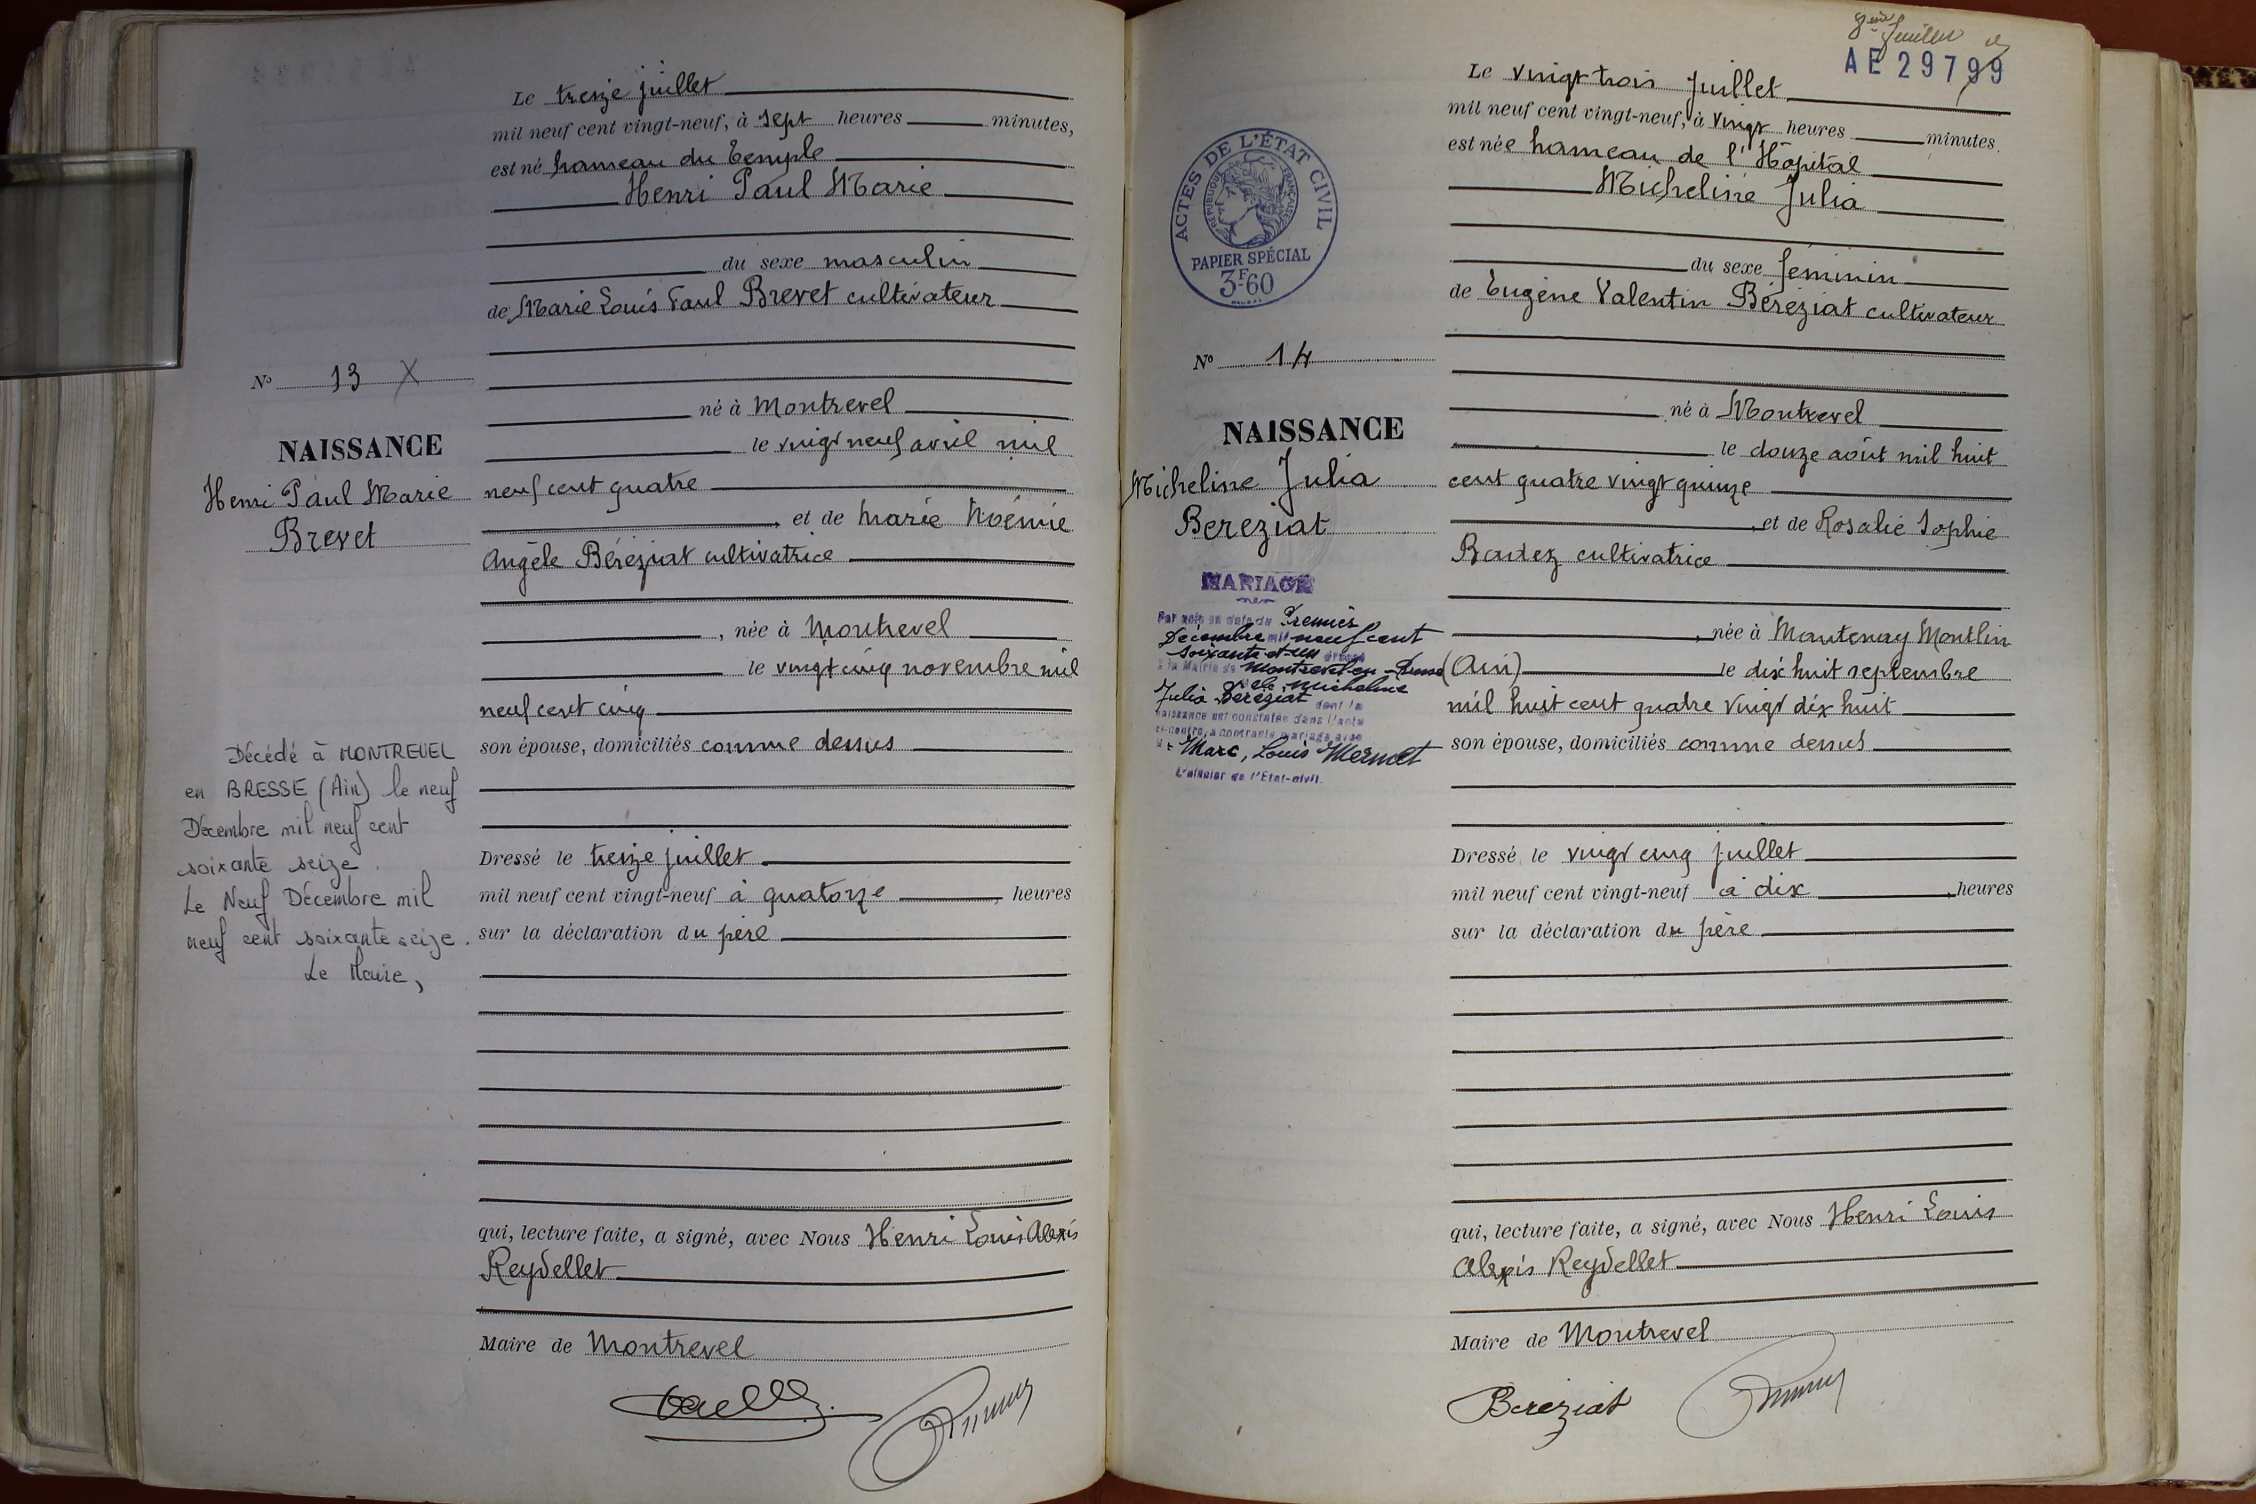 Le treize juillet
mil neuf cent vingt-neuf, à sept heures minutes,
est né hameau du Temple
Henri Paul Marie
du sexe masculin
de Marie Louis Paul Brevet cultivateur
né à Montrevel
le vingt neuf avril mil
neuf cent quatre
, et de Marie Noémie
Angèle Béréziat cultivatrice
, née à Montrevel
le vingt cinq novembre mil
neuf cent cinq
son épouse, domiciliés comme dessus
Dressé le treize juillet
mil neuf cent vingt-neuf à quatorze heures
sur la déclaration du père
qui, lecture faite, a signé, avec Nous Henri Louis Alexis
Reydellet
Maire de Montrevel
No 13 X
NAISSANCE
Henri Paul Marie
Brevet
Décédé à MONTREVEL
en BRESSE (Ain) le neuf
Décembre mil neuf cent
soixante seize.
Le Neuf Décembre mil
neuf cent soixante seize.
Le Maire,
AE 29799
Le vingt trois Juillet
mil neuf cent vingt-neuf, à vingt heures minutes.
est née hameau de l'Hôpital
Micheline Julia
du sexe féminin
de Eugène Valentin Béréziat cultivateur
né à Montrevel
le douze août mil huit
cent quatre vingt quinze
, et de Rosalie Sophie
cultivatrice
, née à Mantenay Montlin
(Ain) le dix huit septembre
mil huit cent quatre vingt dix huit
son épouse, domiciliés comme dessus
Dressé le vingt cinq juillet
mil neuf cent vingt-neuf à dix heures
sur la déclaration du père
qui, lecture faite, a signé, avec Nous Henri Louis
Alexis Reydellet
Maire de Montrevel
Bereziat
ACTES DE L'ÉTAT CIVIL
RÉPUBLIQUE FRANÇAISE
PAPIER SPÉCIAL
3F60
No 14
NAISSANCE
Micheline Julia
Bereziat
MARIAGE
Par acte en date du Premier
Décembre mil neuf cent
soixante et un dressé
à la Mairie de Montrevel-en-Bresse
Melle Micheline
Julia Béréziat dont la
naissance est constatée dans l'acte
ci-contre, a contracté mariage avec
Marc, Louis Mermet
L'officier de l'État-civil.